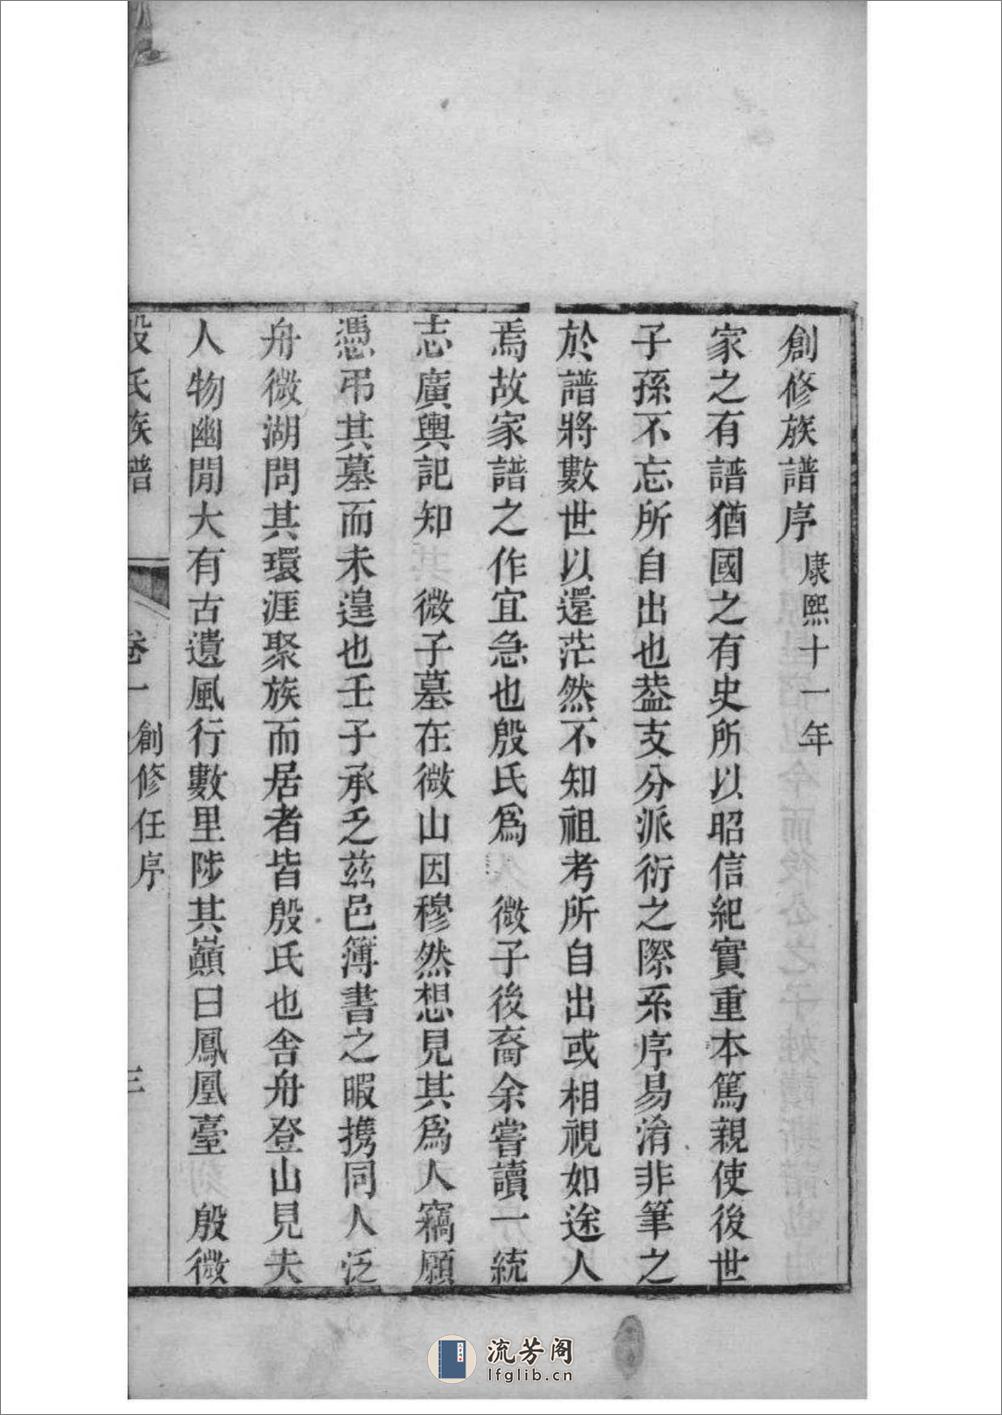 創修族譜序 康熙十一年
家之有譜猶國之有史所以昭信紀實重本篤親使後世
子孫不忘所自出也葢支分派衍之際系序易淆非筆之
於譜將數世以還茫然不知祖考所自出或相視如途人
焉故家譜之作宜急也殷氏爲 微子後裔余嘗讀一統
志廣輿記知 微子墓在微山因穆然想見其爲人竊願
憑弔其墓而未遑也壬子承乏茲邑簿書之暇携同人泛
舟微湖問其環涯聚族而居者皆殷氏也舎舟登山見夫
人物幽閒大有古遺風行數里陟其巔曰鳳凰臺 殷微
殷氏族譜 卷一 創修任序 三
流芳阁
lfglib.cn